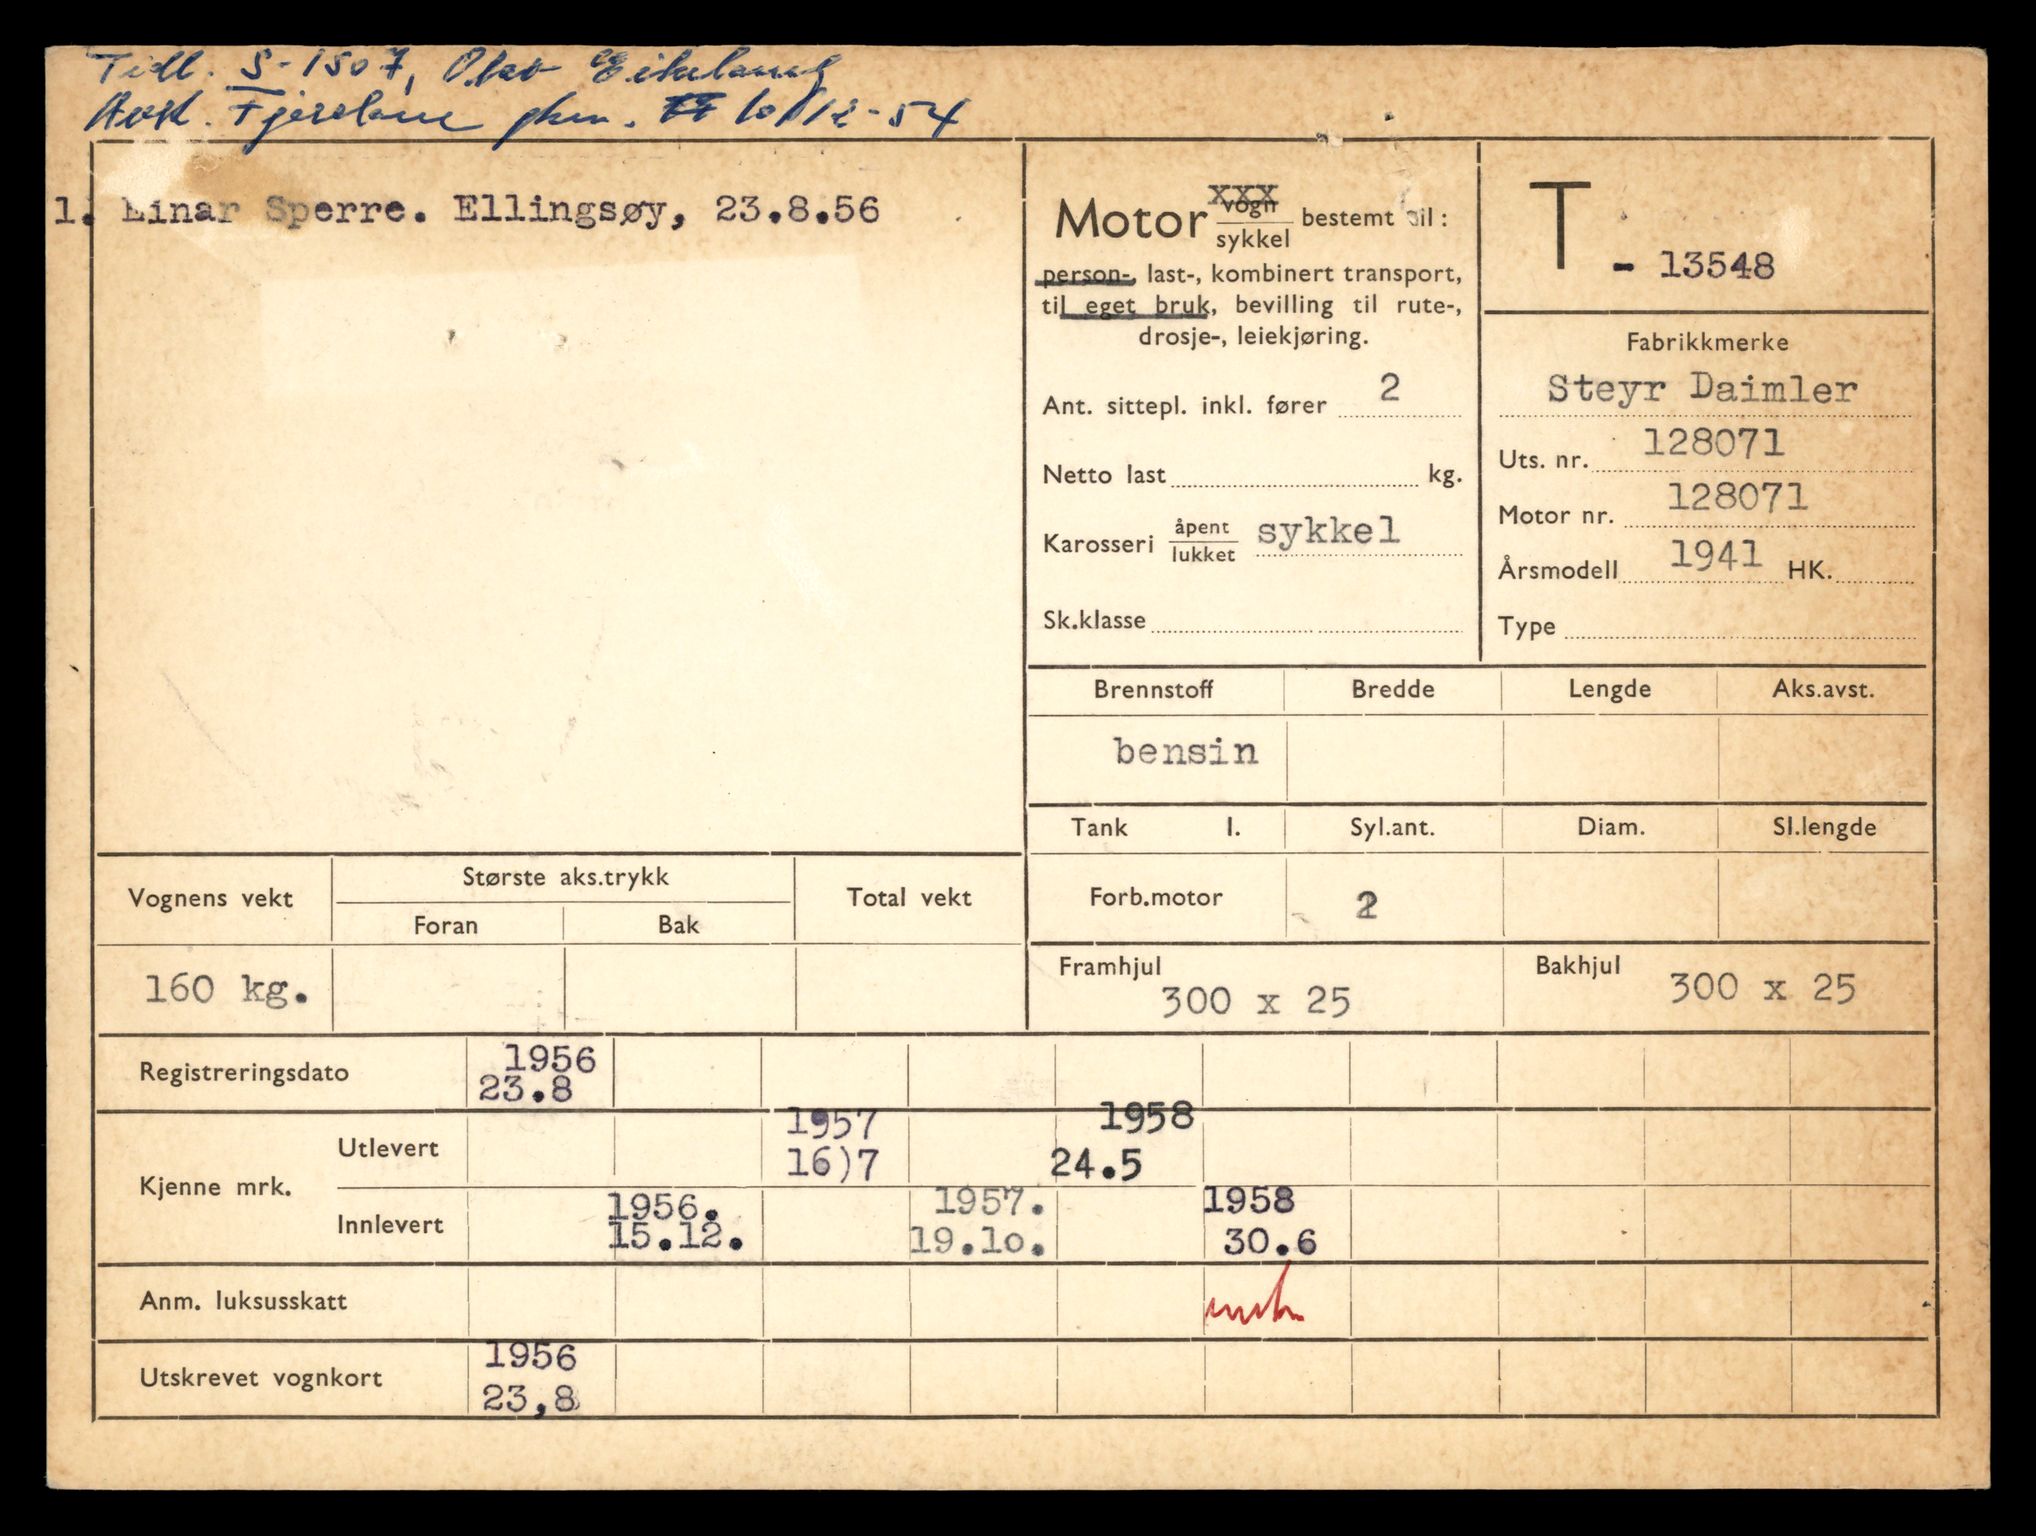 Tidl. S-1507, Olav Eikeland
Avsk. Fjordane 10/12-54
1. Einar Sperre. Ellingsøy, 23.8.56
xxx
Motor vogn/sykkel bestemt til:
person-, last-, kombinert transport,
til eget bruk, bevilling til rute-,
drosje-, leiekjøring.
Ant. sittepl. inkl. fører 2
Netto last kg.
Karosseri åpent/lukket sykkel
Sk.klasse
T - 13548
Fabrikkmerke
Steyr Daimler
Uts. nr. 128071
Motor nr. 128071
Årsmodell 1941 HK.
Type
Brennstoff Bredde Lengde Aks.avst.
bensin
Tank l. Syl.ant. Diam. Sl.lengde
Forb.motor 2
Framhjul 300 x 25 Bakhjul 300 x 25
Vognens vekt Største aks.trykk Total vekt
Foran Bak
160 kg.
Registreringsdato 1956
23.8
Kjenne mrk.
Utlevert 1957 1958
16)7 24.5
Innlevert 1956. 1957. 1958
15.12. 19.10. 30.6
Anm. luksusskatt
Utskrevet vognkort 1956
23,8